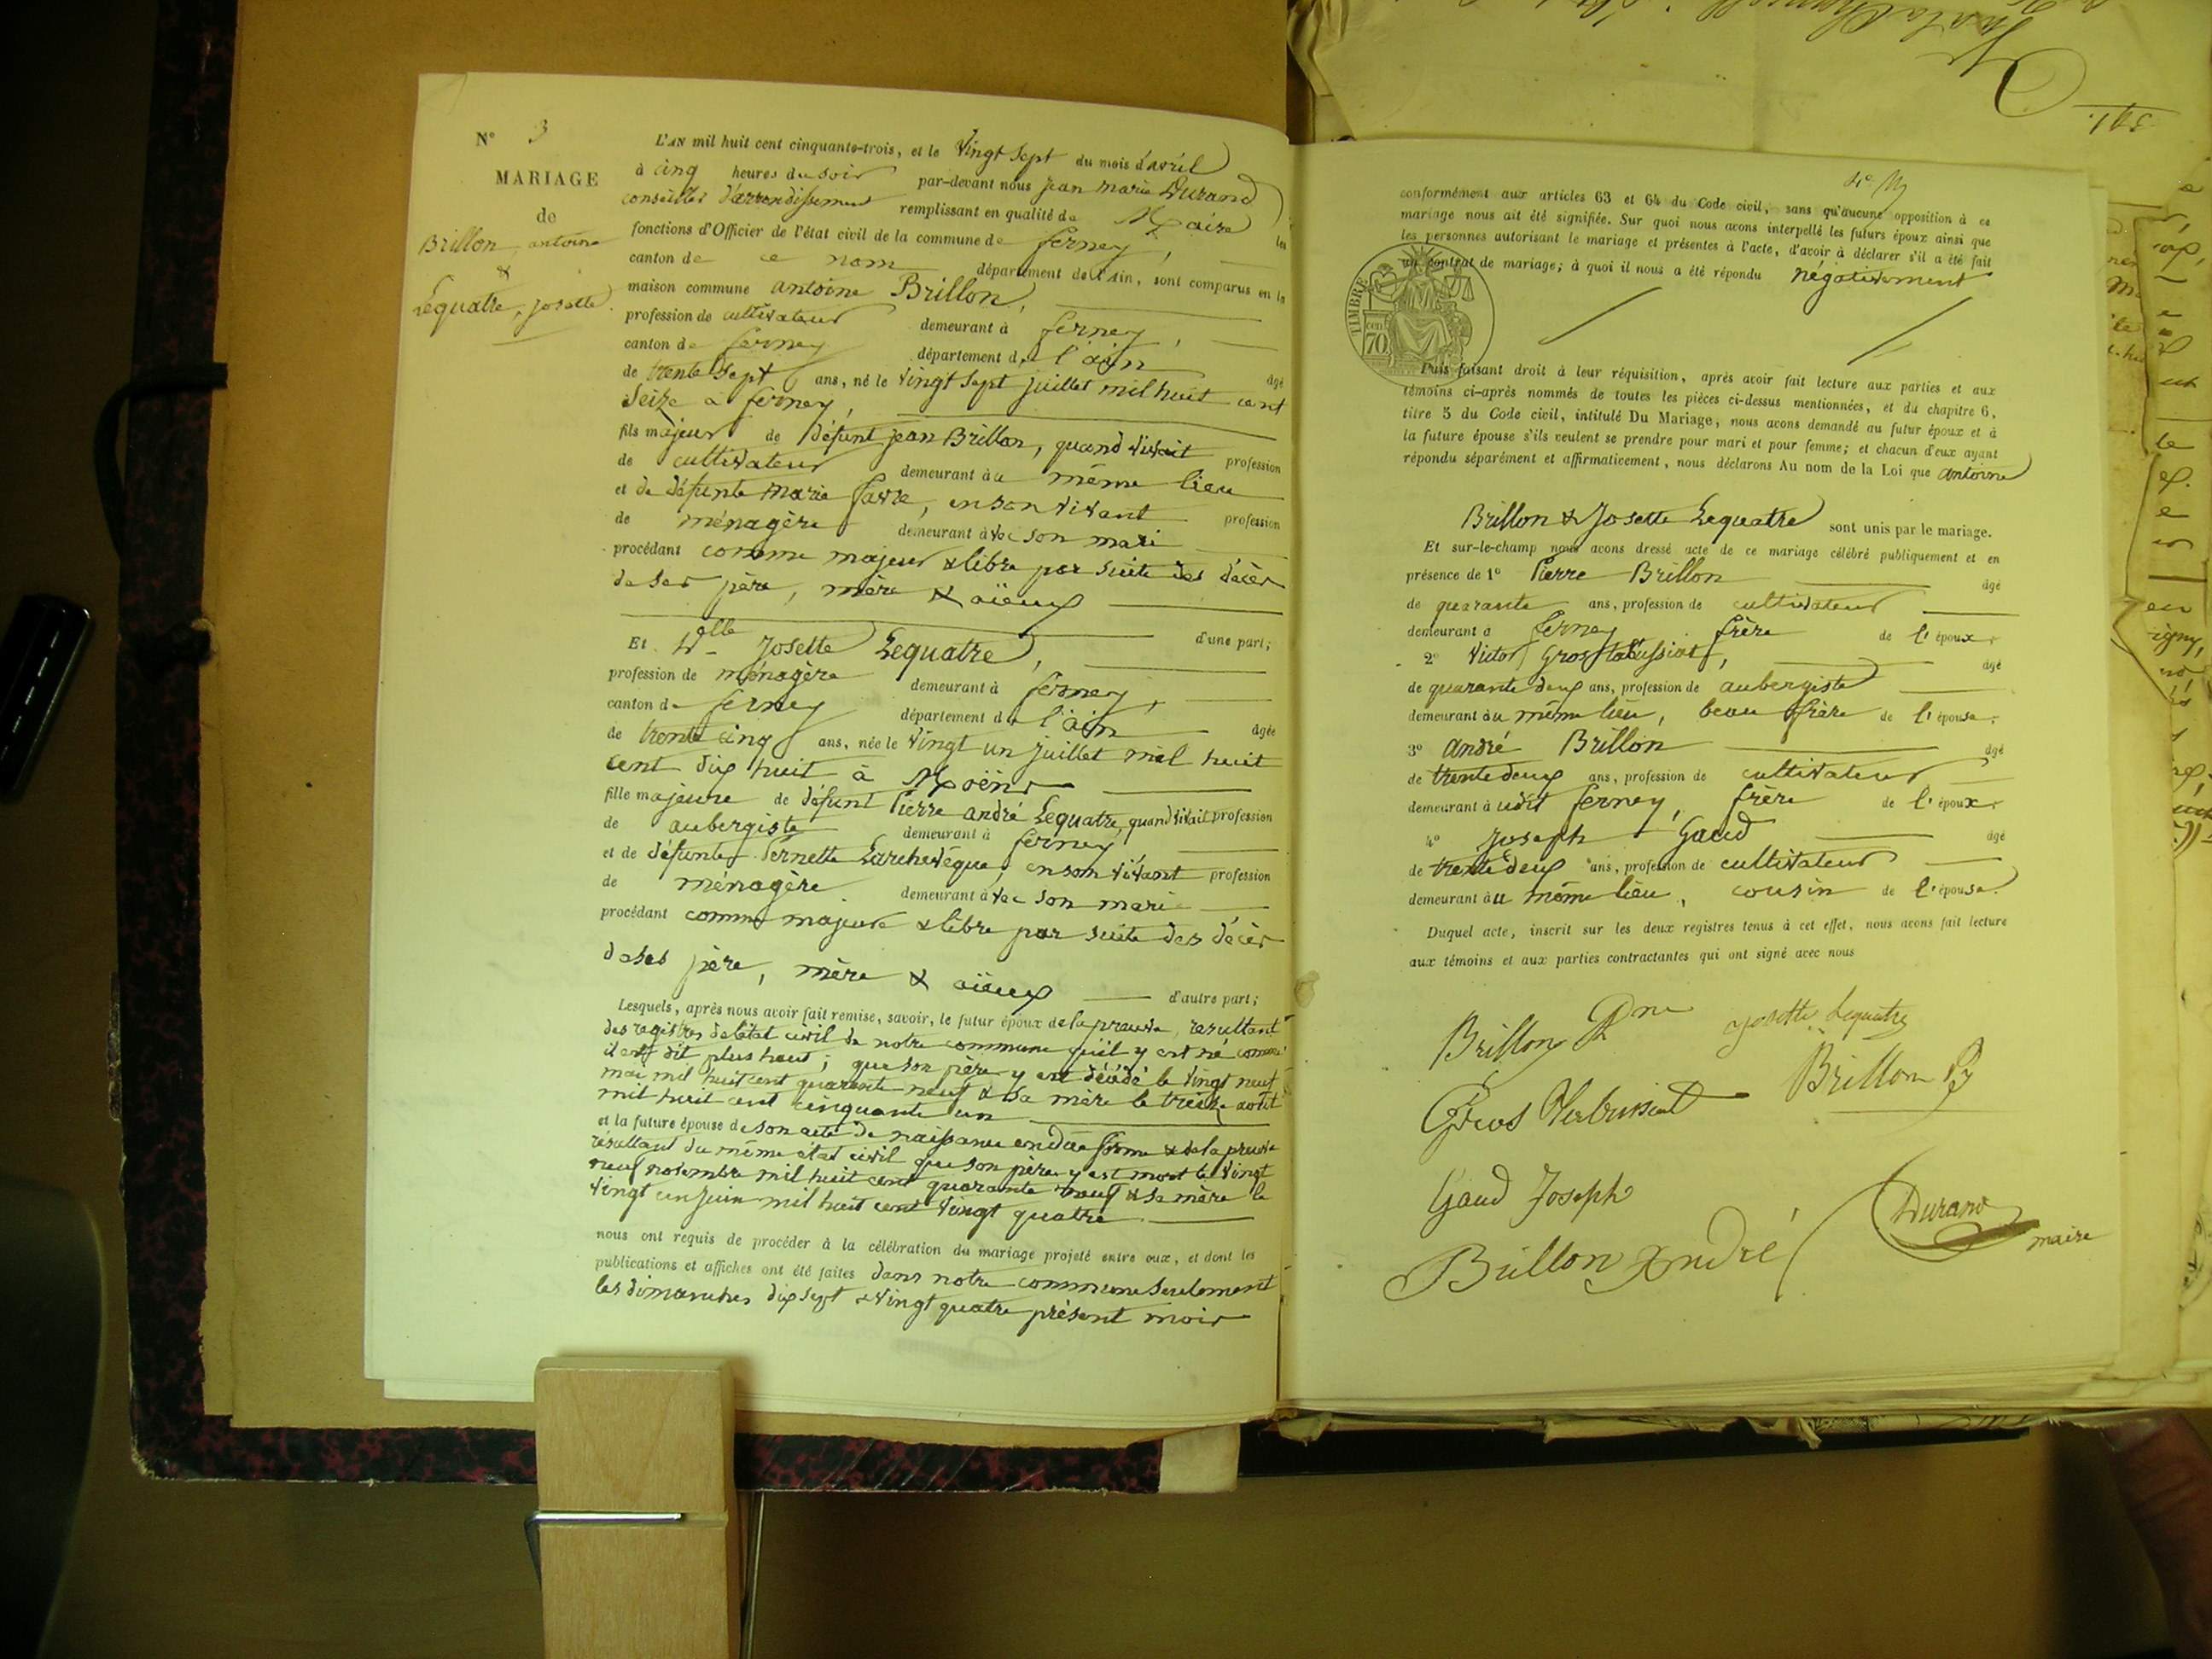 N° 3
MARIAGE
de
Brillon, antoine
&
Lequatre, Josette
L'AN mil huit cent cinquante-trois, et le Vingt Sept du mois d'avril
à cinq heures du soir par-devant nous Jean marie Durand
conseiller d'arrondissement remplissant en qualité de Maire les
fonctions d'Officier de l'état civil de la commune de ferney,
canton de ce nom département de l'Ain, sont comparus en la
maison commune antoine Brillon,
profession de cultivateur demeurant à ferney,
canton de ferney département de l'ain âgé
de trente Sept ans, né le Vingt Sept juillet mil huit cent
Seize à ferney,
fils majeur de défunt jean Brillon, quand vivait profession
de cultivateur demeurant au même lieu
et de défunte marie favre, en son vivant profession
de ménagère demeurant avec son mari
procédant comme majeur & libre par suite des décès
de ses père, mère & aïeux
d'une part;
Et Dlle Josette Lequatre,
profession de ménagère demeurant à ferney,
canton de ferney département de l'ain âgée
de trente cinq ans, née le Vingt un juillet mil huit
cent dix huit à Moëns
fille majeure de défunt Pierre andré Lequatre, quand vivait profession
de aubergiste demeurant à ferney
et de défunte Pernette Larchevêque, en son vivant profession
de ménagère demeurant avec son mari
procédant comme majeure & libre par suite des décès
de ses père, mère & aïeux d'autre part;
Lesquels, après nous avoir fait remise, savoir, le futur époux de la preuve résultant
des registres de l'état civil de notre commune qu'il y est né comme
il est dit plus haut; que son père y est décédé le Vingt neuf
mai mil huit cent quarante neuf & sa mère le treize août
mil huit cent cinquante un
et la future épouse de son acte de naissance en due forme & de la preuve
résultant du même état civil que son père y est mort le Vingt
neuf novembre mil huit cent quarante neuf & sa mère le
Vingt un juin mil huit cent Vingt quatre
nous ont requis de procéder à la célébration du mariage projeté entre eux, et dont les
publications et affiches ont été faites dans notre commune seulement
les dimanches dix sept & Vingt quatre présent mois
conformément aux articles 63 et 64 du Code civil, sans qu'aucune opposition à ce
mariage nous ait été signifiée. Sur quoi nous avons interpellé les futurs époux ainsi que
les personnes autorisant le mariage et présentes à l'acte, d'avoir à déclarer s'il a été fait
un contrat de mariage; à quoi il nous a été répondu négativement
TIMBRE
70 cen
Puis faisant droit à leur réquisition, après avoir fait lecture aux parties et aux
témoins ci-après nommés de toutes les pièces ci-dessus mentionnées, et du chapitre 6,
titre 5 du Code civil, intitulé Du Mariage, nous avons demandé au futur époux et à
la future épouse s'ils veulent se prendre pour mari et pour femme; et chacun d'eux ayant
répondu séparément et affirmativement, nous déclarons Au nom de la Loi que antoine
Brillon & Josette Lequatre sont unis par le mariage.
Et sur-le-champ nous avons dressé acte de ce mariage célébré publiquement et en
présence de 1° Pierre Brillon âgé
de quarante ans, profession de cultivateur
demeurant à ferney frère de l'époux
2° Victor Gros âgé
de quarante deux ans, profession de aubergiste
demeurant au même lieu, beau frère de l'épouse.
3° andré Brillon âgé
de trente deux ans, profession de cultivateur
demeurant à udit ferney, frère de l'époux
4° Joseph Gaud âgé
de trente deux ans, profession de cultivateur
demeurant au même lieu, cousin de l'épouse.
Duquel acte, inscrit sur les deux registres tenus à cet effet, nous avons fait lecture
aux témoins et aux parties contractantes qui ont signé avec nous
Brillon Josette Lequatre
Gros Brillon
Gaud Joseph
Brillon André Durand maire